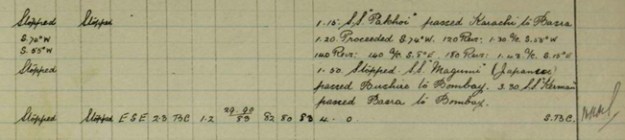 Stopped Stopped 1.15. S.S "Pakhoi" passed Karachi to Basra
S.74°W 1.20 Proceeded S.74°W. 120 Revs: 1.30 S.55°W
S.55°W 140 Revs: 140 S.5°E. 150 Revs: S.15°E
Stopped 1.50. Stopped. S.S. (Japanese)
passed Bushire to Bombay. 3.30 S.S
passed Basra to Bombay.
Stopped Stopped ESE 2-3 TBC 1.2 29.90/83 82 80 83 4. 0 S.T.B.C.